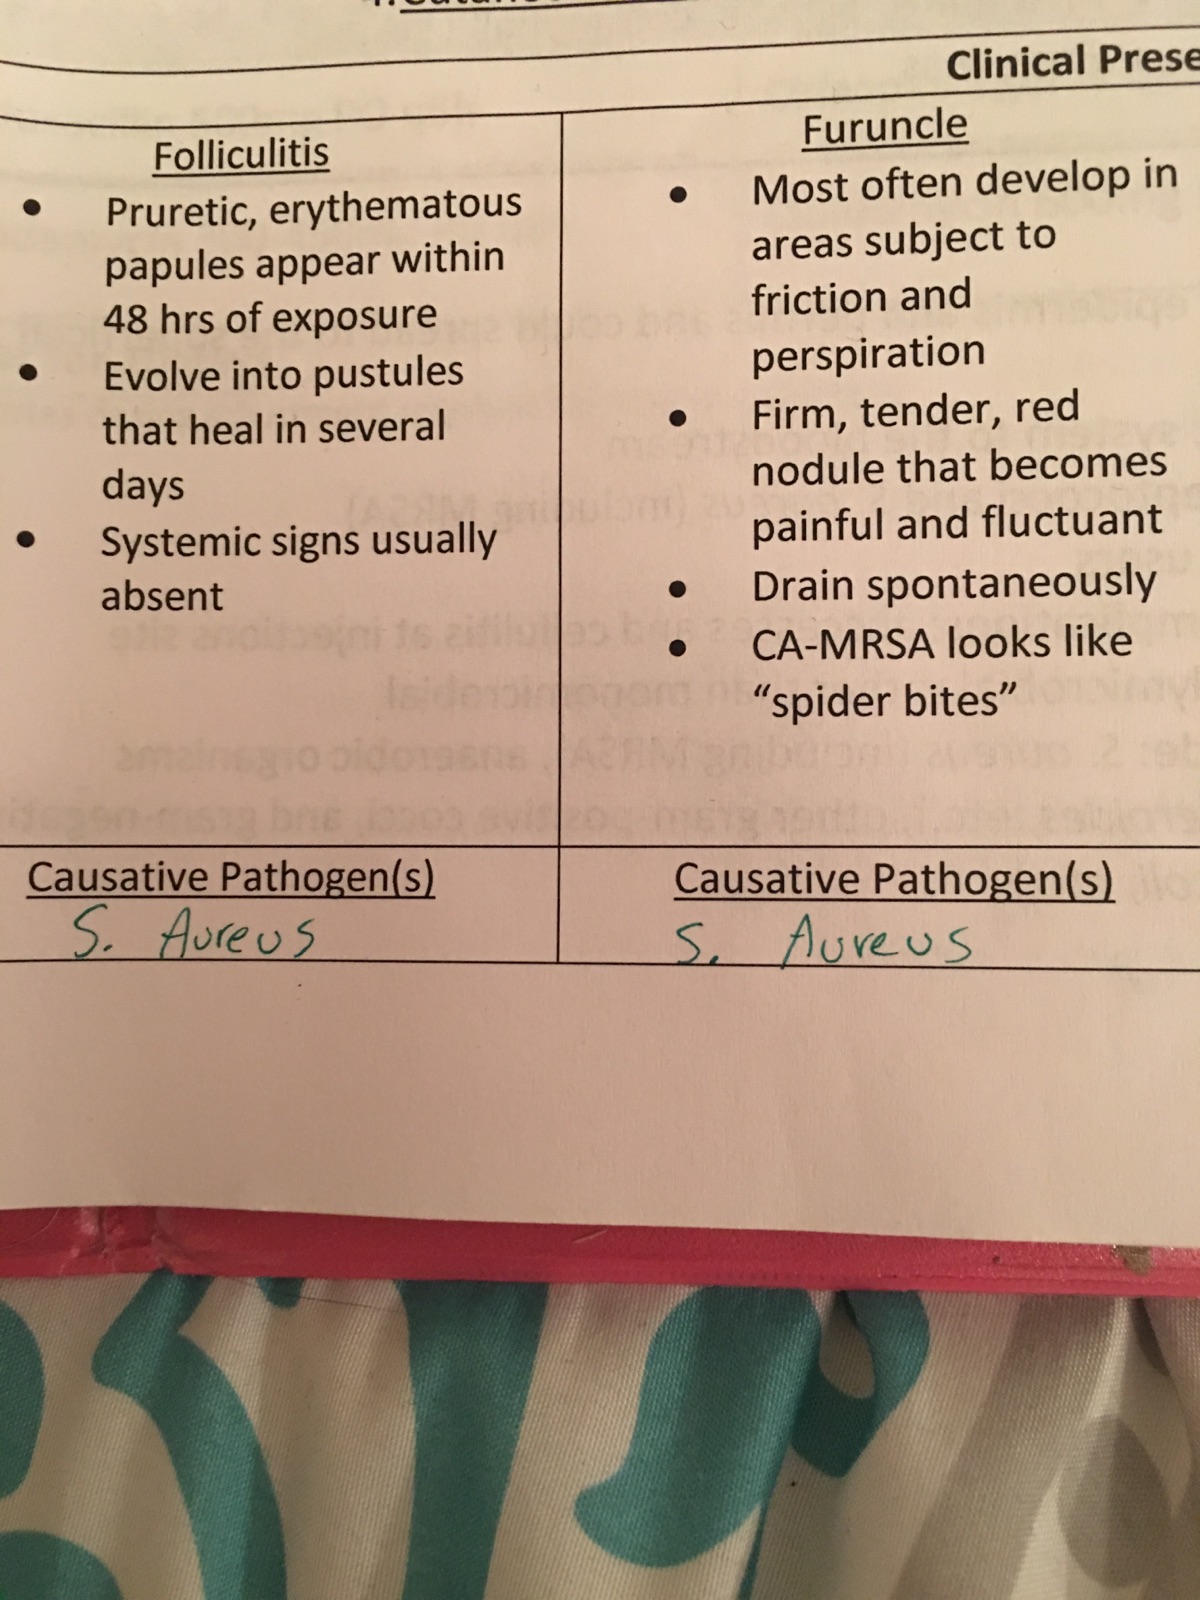 Clinical Prese
Folliculitis
• Pruretic, erythematous
papules appear within
48 hrs of exposure
• Evolve into pustules
that heal in several
days
• Systemic signs usually
absent
Furuncle
• Most often develop in
areas subject to
friction and
perspiration
• Firm, tender, red
nodule that becomes
painful and fluctuant
• Drain spontaneously
• CA-MRSA looks like
“spider bites”
Causative Pathogen(s)
S. Aureus
Causative Pathogen(s)
S. Aureus